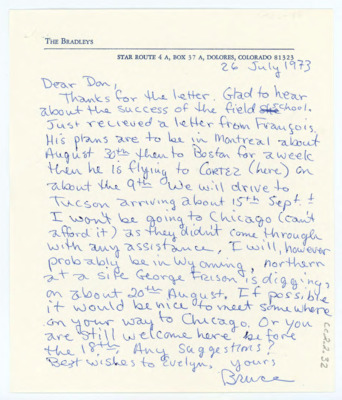 THE BRADLEYS
STAR ROUTE 4 A, BOX 37 A, DOLORES, COLORADO 81323
26 July 1973
Dear Don,
Thanks for the letter. Glad to hear
about the success of the field school.
Just recieved a letter from François.
His plans are to be in Montreal about
August 30th then to Boston for a week
then he is flying to CORTEZ (here) on
about the 9th. We will drive to
Tucson arriving about 15th Sept.
I won't be going to Chicago (can't
afford it) as they didn't come through
with any assistance. I will, however
probably be in Wyoming, northern
at a site George Frison is digging
on about 20th August. If possible
it would be nice to meet somewhere
on your way to Chicago. Or you
are still welcome here before
the 18th. Any suggestions?
Best wishes to Evelyn, yours
Bruce